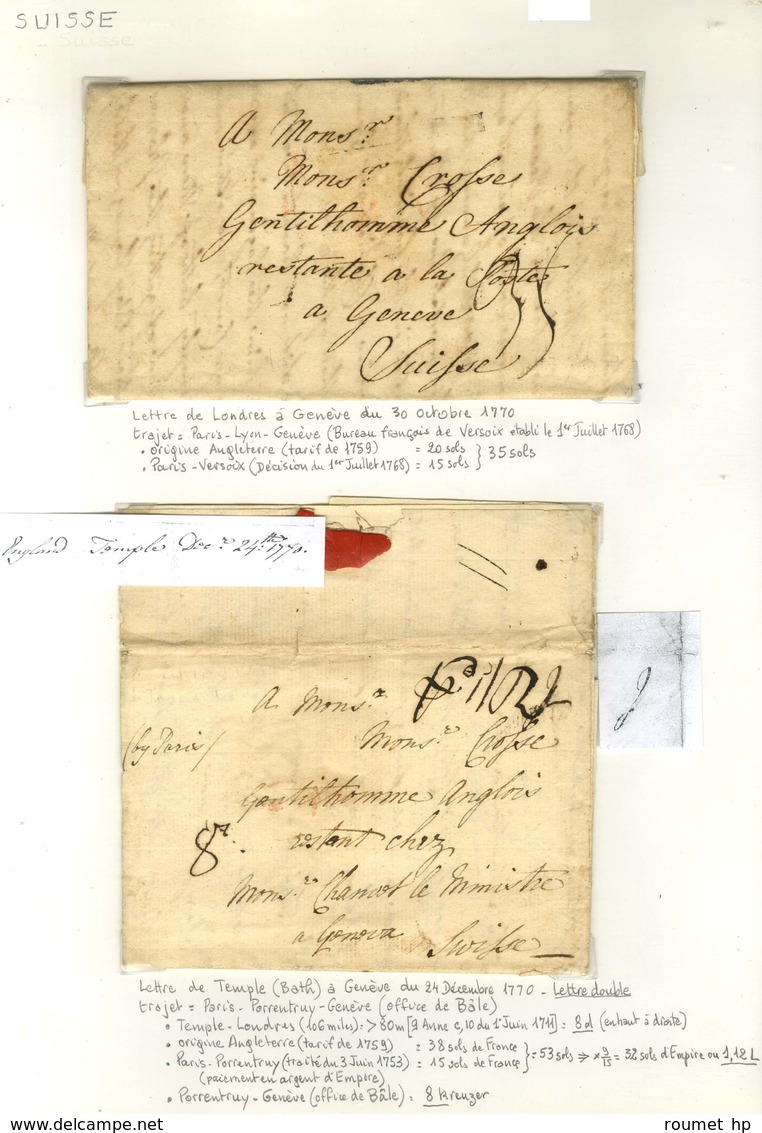 SUISSE
Suisse
A Monsr.
Monsr. Crosse
Gentilhomme Anglois
restante a la Poste
a Geneve
Suisse
35
Lettre de Londres à Genève du 30 octobre 1770
trajet = Paris-Lyon-Genève (Bureau français de Versoix établi le 1er Juillet 1768)
• origine Angleterre (tarif de 1759) = 20 sols } 35 sols
• Paris-Versoix (Décision du 1er Juillet 1768) = 15 sols
England Temple Decr. 24th. 1770.
A Monsr.
(by Paris)
Monsr. Crosse
Gentilhomme Anglois
restant chez
8r.
Monsr. Chauvet le Ministre
a Geneva
Suisse
Lettre de Temple (Bath) à Genève du 24 Décembre 1770 - Lettre double
trajet = Paris-Porrentruy-Genève (office de Bâle)
• Temple-Londres (106 miles) : > 80m [9 Anne c,10 du 1er Juin 1711] = 8 d (en haut à droite)
• origine Angleterre (tarif de 1759) = 38 sols de France
• Paris-Porrentruy (traité du 3 Juin 1753) = 15 sols de France } = 53 sols ⇒ x 9/15 = 32 sols d'Empire ou 1,12 L
(paiement en argent d'Empire)
• Porrentruy-Genève (office de Bâle) = 8 kreuzer
roumet hp
roumet hp